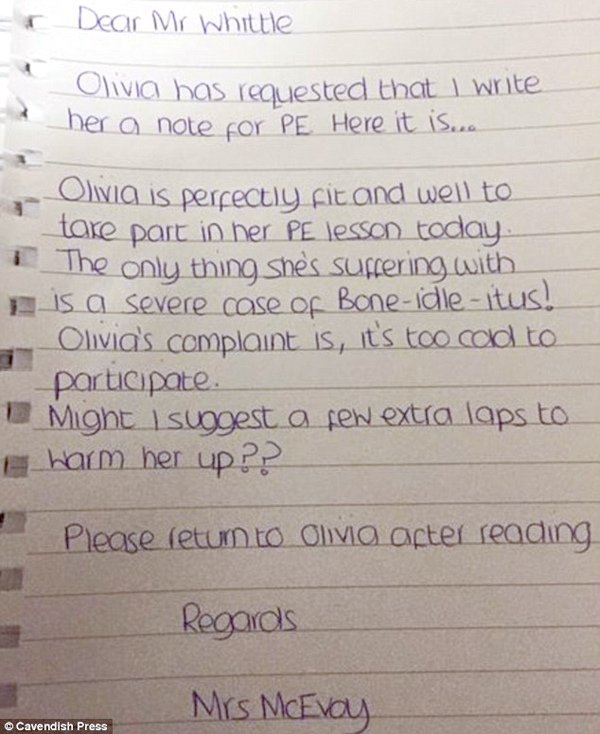 Dear Mr Whittle
Olivia has requested that I write
her a note for PE Here it is...
Olivia is perfectly fit and well to
take part in her PE lesson today.
The only thing she's suffering with
is a severe case of Bone-idle-itus!
Olivia's complaint is, it's too cold to
participate.
Might I suggest a few extra laps to
warm her up??
Please return to Olivia after reading
Regards
Mrs McEvoy
© Cavendish Press